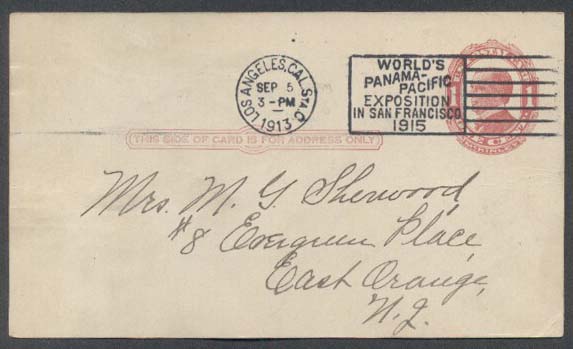 LOS ANGELES, CAL. STA. C
SEP 5
3-PM
1913
WORLD'S
PANAMA-
PACIFIC
EXPOSITION
IN SAN FRANCISCO
1915
THIS SIDE OF CARD IS FOR ADDRESS ONLY
Mrs. M. G. Sherwood,
#8 Evergreen Place,
East Orange,
N.J.